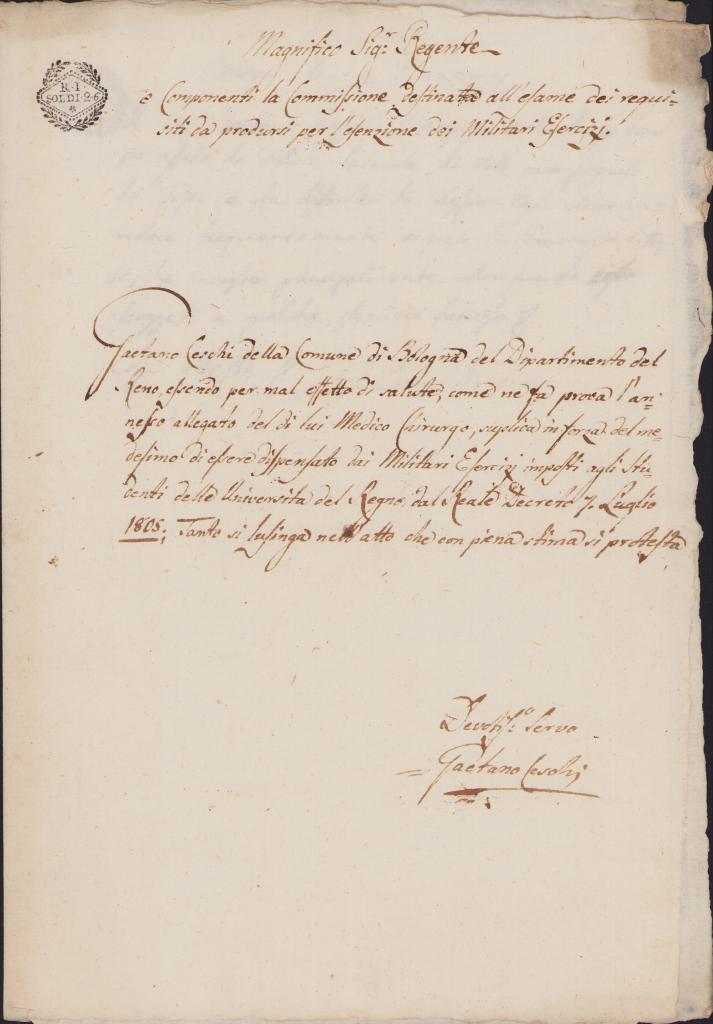 Magnifico Sig.r Regente
R. I
SOLDI. 2. 6
e Componenti la Commissione destinata all'esame dei requi-
siti da prodursi per l'esenzione dei Militari Esercizj.
Gaetano Ceschi della Comune di Bologna del Dipartimento del
Reno, essendo per mal effetto di salute, come ne fa prova l'an-
nesso allegato del di lui Medico Chirurgo, suplica in forza del me-
desimo di essere dispensato dai Militari Esercizj imposti agli Stu-
denti delle Università del Regno dal Reale Decreto 7. Luglio
1805; Tanto si lusinga nell'atto che con piena stima si protesta
Devotis.o Servo
Gaetano Ceschi